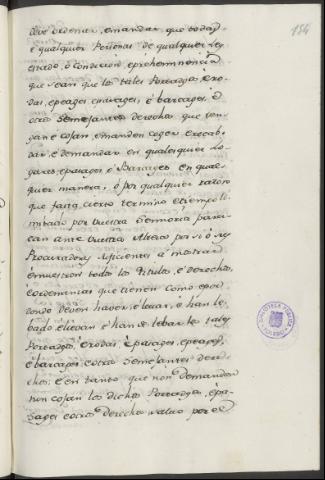 154
deve ordenar, emandar que todos,
e qualquier Personas de qualquier Ley
estado, ó condicion, epreheminencia
que sean que los tales Portadgos, é ro-
das, epeages epasages, é barcages, é
otros semejantes derechos que ten-
gan é cojan, emanden coger erecab-
dar, é demandar en qualesquier Lo-
gares, epasages, é Barcages en qual-
quier manera, ó por qualquier razon
que fasta cierto termino etiempo li-
mitado por vuestra Señoria parez-
can ante vuestra Alteza por si ó sus
Procuradores suficientes á mostrar
émuestren todos los Titulos, é derechos,
é ordenanzas que tienen como epor
donde deven haver, é levar, é han le-
bado éllevan é han de lebar los tales
Portadgos, é rodas, é pasages, epeages,
é barcages é otros semejantes dere-
chos: é en tanto que non demanden
nin cojan los dichos Portadgos, épa-
sages é otros derechos salvo por el
BIBLIOTECA PUBLICA
TOLEDO